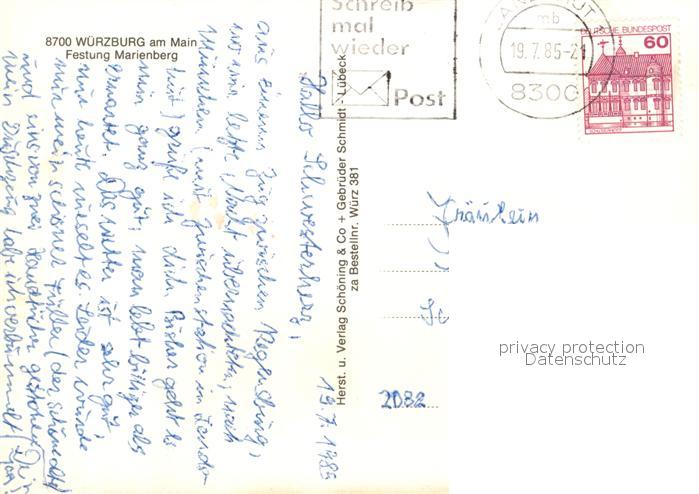 8700 WÜRZBURG am Main
Festung Marienberg
Schreib
mal
wieder
Post
mb
19.7.85-21
8300
DEUTSCHE BUNDESPOST
60
Herst. u. Verlag Schöning & Co + Gebrüder Schmidt - Lübeck
za Bestellnr. Würz 381
19.7.1985
Hallo Schwesterherz,
aus einem Zug zwischen Regensburg,
wo wir letzte Nacht übernachteten, nach
München (mit Zwischenstation in Lands-
hut) grüße ich dich. Bisher geht es
mir ganz gut, man lebt billiger als
erwartet. Das Wetter ist sehr gut,
nur heute miesel es. Leider wurde
mir mein schöner Füller (der schöne alte)
und eins von zwei Handtücher gestohlen.
Mein
Fräulein
2082
privacy protection
Datenschutz